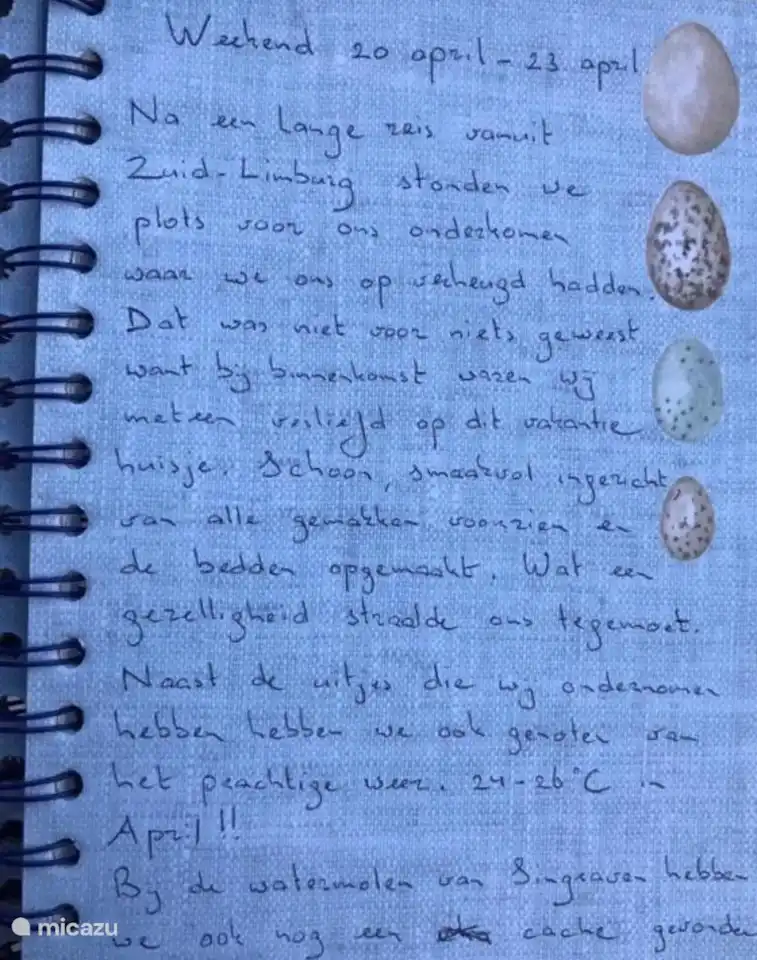 Weekend 20 april - 23 april
Na een lange reis vanuit
Zuid-Limburg stonden we
plots voor ons onderkomen
waar we ons op verheugd hadden.
Dat was niet voor niets geweest
want bij binnenkomst waren wij
meteen verliefd op dit vakantie
huisje. Schoon, smaakvol ingericht,
van alle gemakken voorzien en
de bedden opgemaakt. Wat een
gezelligheid straalde ons tegemoet.
Naast de uitjes die wij ondernomen
hebben hebben we ook genoten van
het prachtige weer. 24-26°C in
April!!
Bij de watermolen van Singraven hebben
we ook nog een cache gevonden
micazu